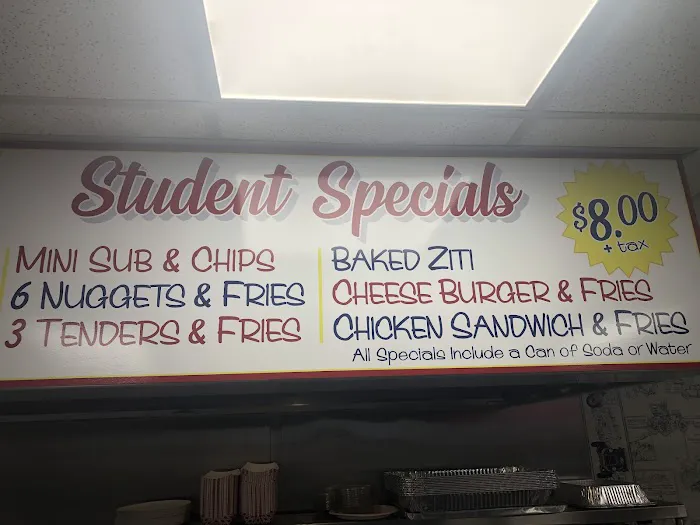 Student Specials
$8.00
+ tax
MINI SUB & CHIPS
6 NUGGETS & FRIES
3 TENDERS & FRIES
BAKED ZITI
CHEESE BURGER & FRIES
CHICKEN SANDWICH & FRIES
All Specials Include a Can of Soda or Water